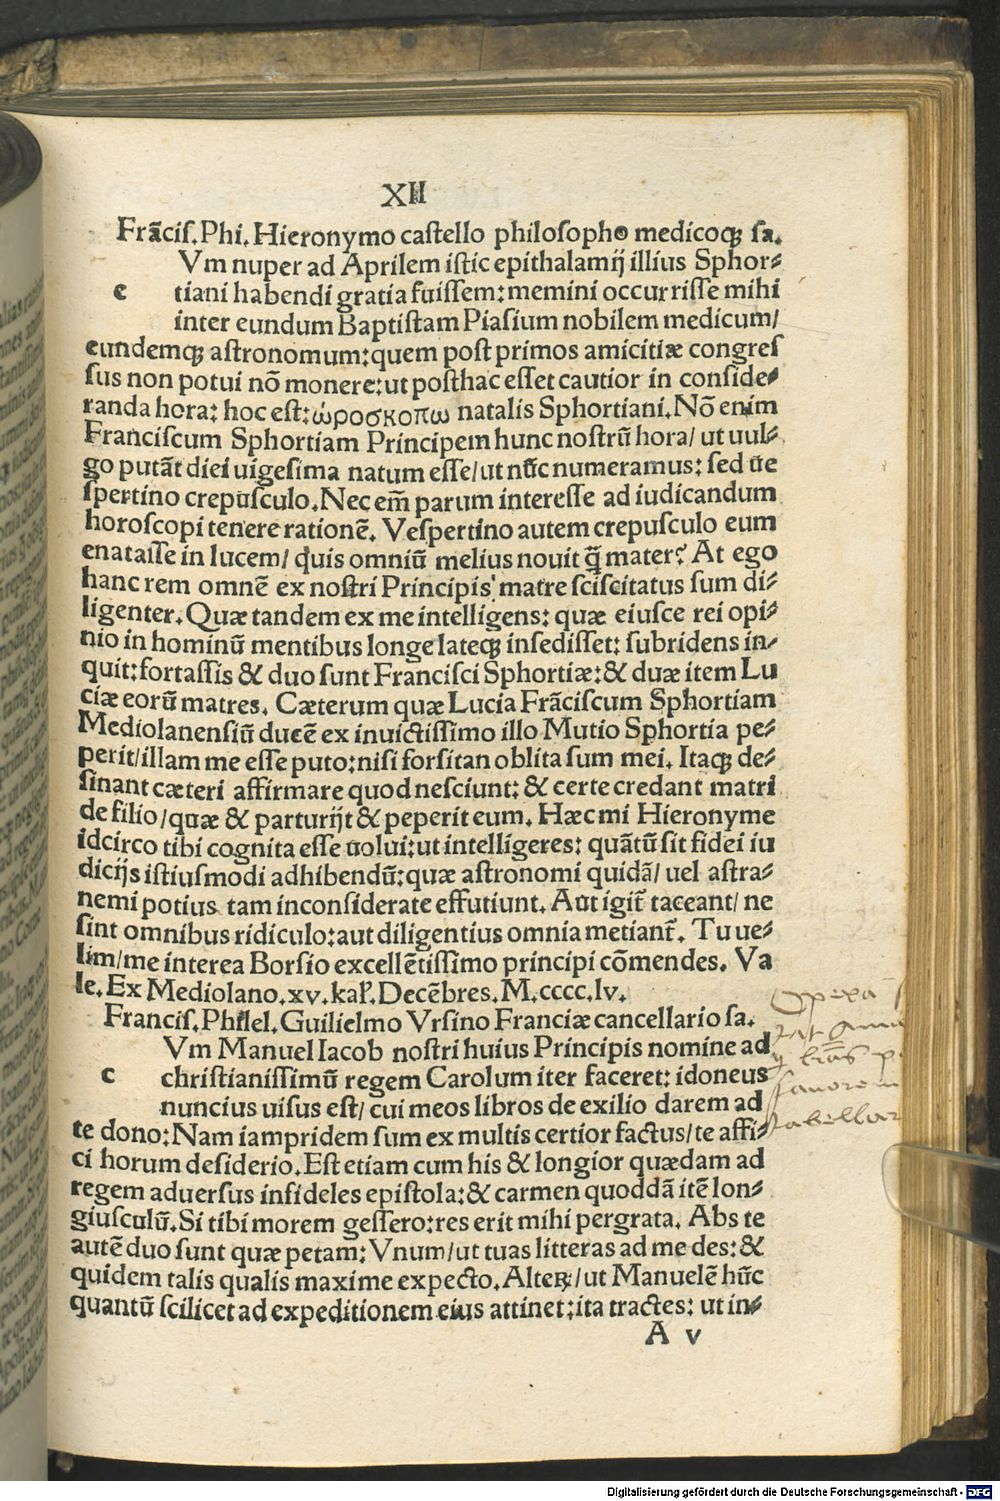 XII
Frācis. Phi. Hieronymo castello philosopho medicoqꝫ sa.
Vm nuper ad Aprilem istic epithalamij illius Sphor-
c tiani habendi gratia fuissem: memini occurrisse mihi
inter eundum Baptistam Piasium nobilem medicum/
eundemqꝫ astronomum: quem post primos amicitiæ congres
sus non potui nō monere: ut posthac esset cautior in conside-
randa hora: hoc est: ὡροσκοπω natalis Sphortiani. Nō enim
Franciscum Sphortiam Principem hunc nostrū hora/ ut uul-
go putāt diei uigesima natum esse/ ut nūc numeramus: sed ue
spertino crepusculo. Nec em̄ parum interesse ad iudicandum
horoscopi tenere rationē. Vespertino autem crepusculo eum
enatasse in lucem/ quis omniū melius nouit q̄ mater? At ego
hanc rem omnē ex nostri Principis matre sciscitatus sum di-
ligenter. Quæ tandem ex me intelligens: quæ eiusce rei opi-
nio in hominū mentibus longe lateqꝫ insedisset: subridens in-
quit: fortassis & duo sunt Francisci Sphortiæ: & duæ item Lu
ciæ eorū matres. Cæterum quæ Lucia Frāciscum Sphortiam
Mediolanensiū ducē ex inuictissimo illo Mutio Sphortia pe-
perit/ illam me esse puto: nisi forsitan oblita sum mei. Itaqꝫ de-
sinant cæteri affirmare quod nesciunt: & certe credant matri
de filio/ quæ & parturijt & peperit eum. Hæc mi Hieronyme
idcirco tibi cognita esse uolui: ut intelligeres: quātū sit fidei iu
dicijs istiusmodi adhibendū: quæ astronomi quidā/ uel astra-
nemi potius tam inconsiderate effutiunt. Aut igit̄ taceant/ ne
sint omnibus ridiculo: aut diligentius omnia metiant̄. Tu ue-
lim/ me interea Borsio excellētissimo principi cōmendes. Va
le. Ex Mediolano. xv. kal̓. Decēbres. M. cccc. lv.
Francis. Philel. Guilielmo Vrsino Franciæ cancellario sa.
Vm Manuel Iacob nostri huius Principis nomine ad
c christianissimū regem Carolum iter faceret: idoneus
nuncius uisus est/ cui meos libros de exilio darem ad
te dono: Nam iampridem sum ex multis certior factus/ te affi-
ci horum desiderio. Est etiam cum his & longior quædam ad
regem aduersus infideles epistola: & carmen quoddā itē lon-
giusculū. Si tibi morem gessero: res erit mihi pergrata. Abs te
autē duo sunt quæ petam: Vnum/ ut tuas litteras ad me des: &
quidem talis qualis maxime expecto. Alteꝝ/ ut Manuelē hūc
quantū scilicet ad expeditionem eius attinet: ita tractes: ut in-
A v
Digitalisierung gefördert durch die Deutsche Forschungsgemeinschaft - DFG